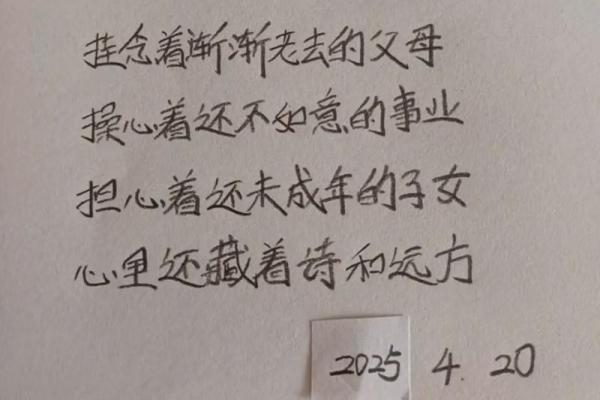 挂念着渐渐老去的父母
操心着还不如意的事业
担心着还未成年的子女
心里还藏着诗和远方
2025 4. 20